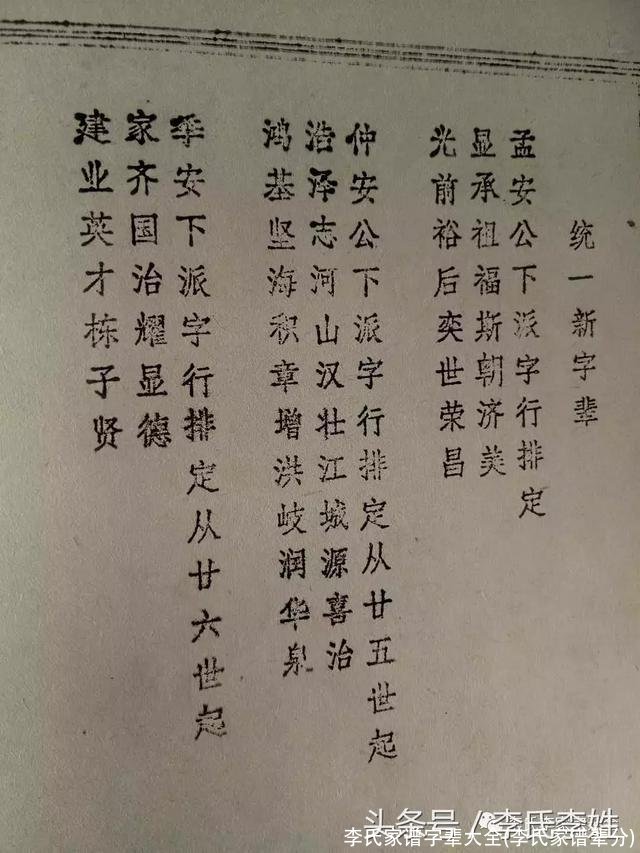 统一新字辈
孟安公下派字行排定
显承祖福斯朝济美
光前裕后奕世荣昌
仲安公下派字行排定从廿五世起
浩泽志河山汉壮江城源喜治
鸿基坚海积章增洪岐润华泉
季安下派字行排定从廿六世起
家齐国治耀显德
建业英才栋子贤
头条号/李氏李姓
李氏家谱字辈大全(李氏家谱辈分)